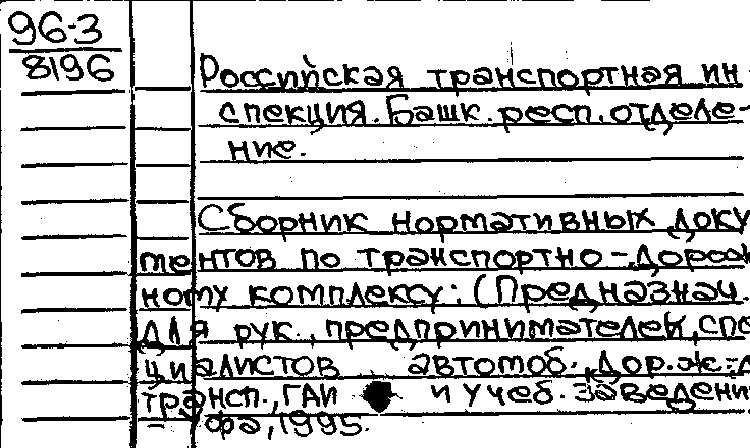 96-3
8196
Российская транспортная ин-
спекция. Башк. респ. отделе-
ние.
Сборник нормативных доку
ментов по транспортно-дорож
ному комплексу: (Предназнач.
для рук., предпринимателей, спе
циалистов автомоб., дор.-ж.-д
трансп., ГАИ и учеб. заведени
фа, 1995.